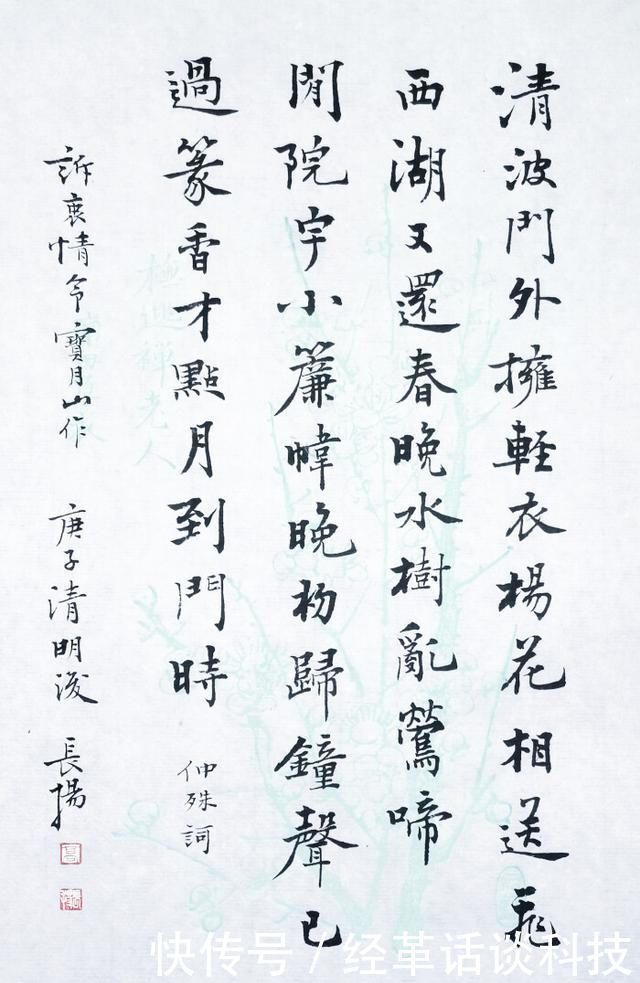 清波門外擁輕衣楊花相送飛
西湖又還春晚水樹亂鶯啼
閒院宇小簾幃晚初歸鐘聲已
過篆香才點月到門時 仲殊詞
訴衷情令寶月山作 庚子清明後 長揚
快传号 / 经革话谈科技